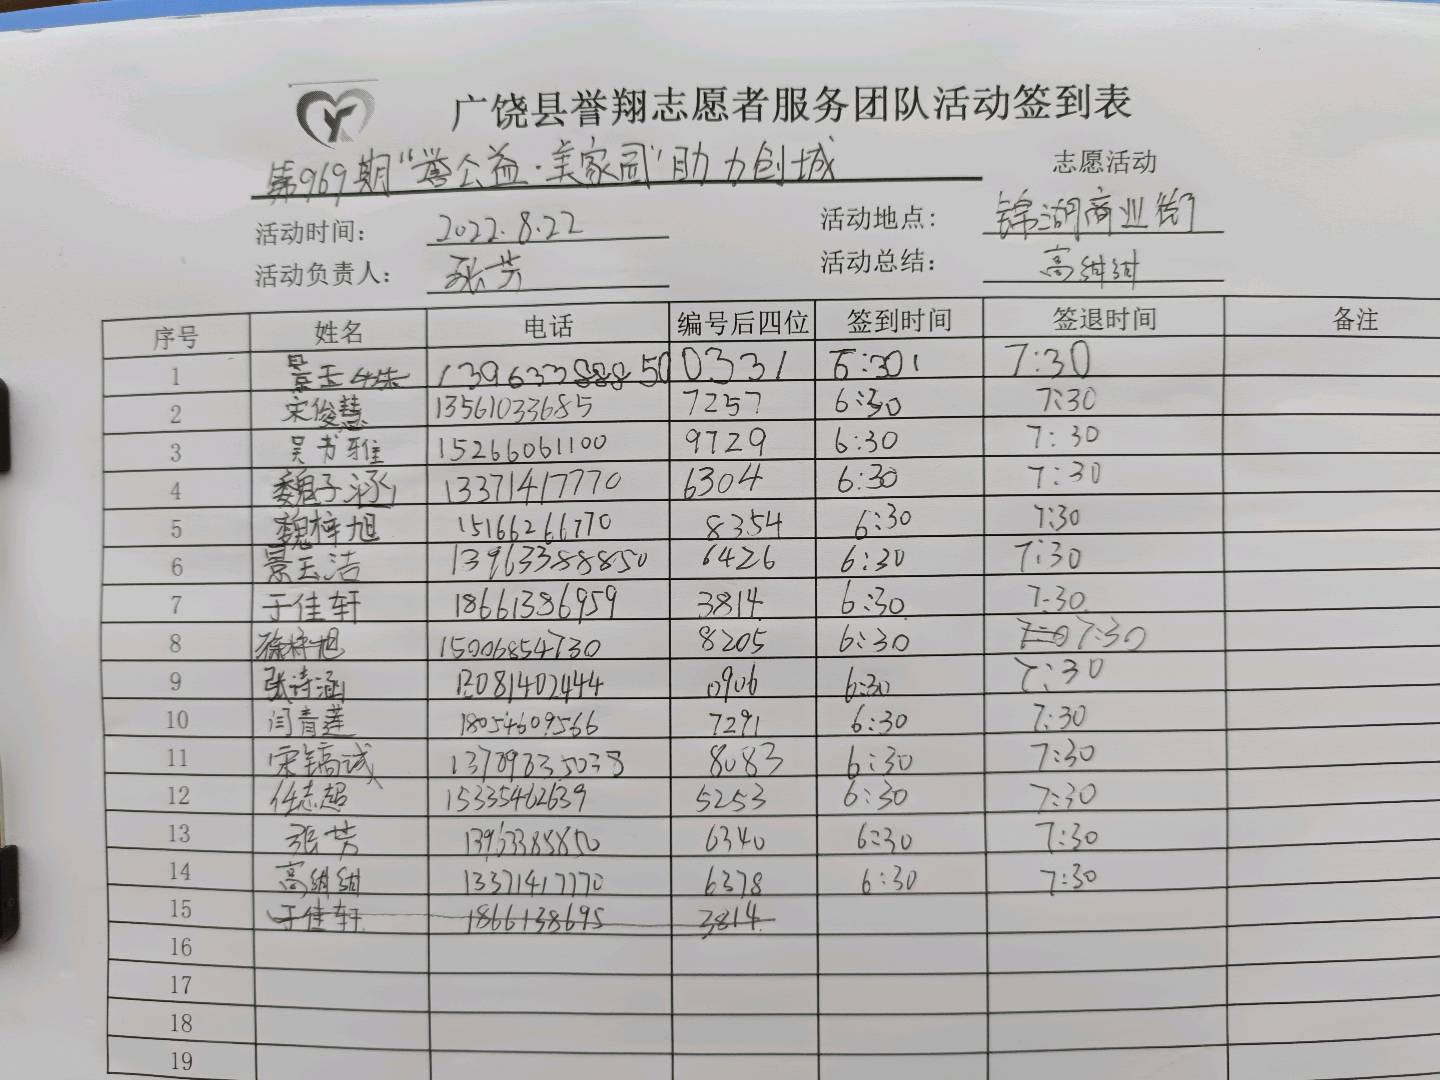 广饶县誉翔志愿者服务团队活动签到表
第969期“誉公益·美家园”助力创城 志愿活动
活动时间: 2022.8.22 活动地点: 锦湖商业街
活动负责人: 张芳 活动总结: 高绀绀
序号 姓名 电话 编号后四位 签到时间 签退时间 备注
1 景玉姝 13963388850 0331 6:30 7:30
2 宋俊慧 13561033685 7257 6:30 7:30
3 吴书雅 15266061100 9729 6:30 7:30
4 魏子涵 13371417770 6304 6:30 7:30
5 魏梓旭 15166266770 8354 6:30 7:30
6 景玉洁 13963388850 6426 6:30 7:30
7 于佳轩 18661386959 3814 6:30 7:30
8 徐梓旭 15006854730 8205 6:30 7:30
9 张诗涵 0906 6:30 7:30
10 闫青莲 18054609566 7291 6:30 7:30
11 宋镐诚 8083 6:30 7:30
12 任志超 15335462639 5253 6:30 7:30
13 张芳 13963388850 6340 6:30 7:30
14 高绀绀 13371417770 6378 6:30 7:30
15 于佳轩 1866138695 3814
16
17
18
19